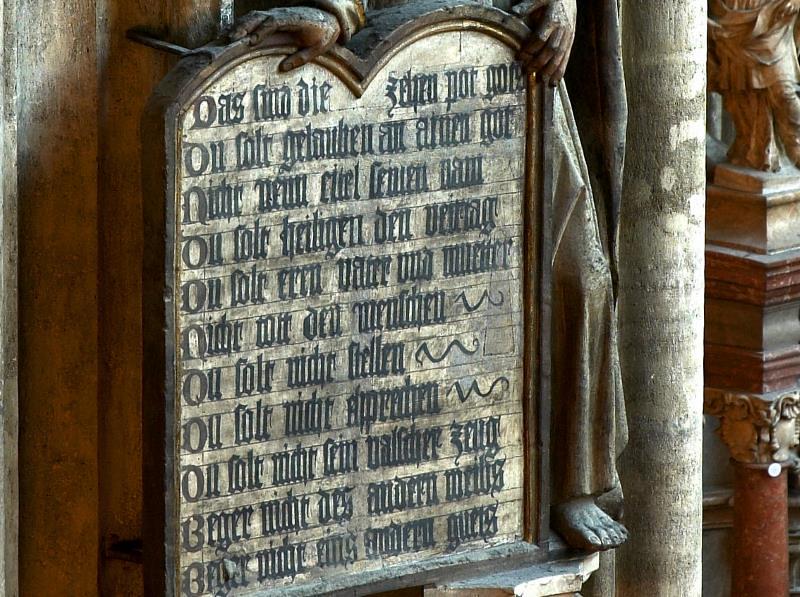 Das sind die zehen pot gots
Du solt gelauben an ainen got
Nicht nenn eitel seinen nam
Du solt heiligen den veirtag
Du solt eren vater und mueter
Nicht tott den menschen
Du solt nicht stellen
Du solt nicht eprechen
Du solt nicht sein valscher zeug
Beger nicht des andern weibs
Beger nicht eins andern guets